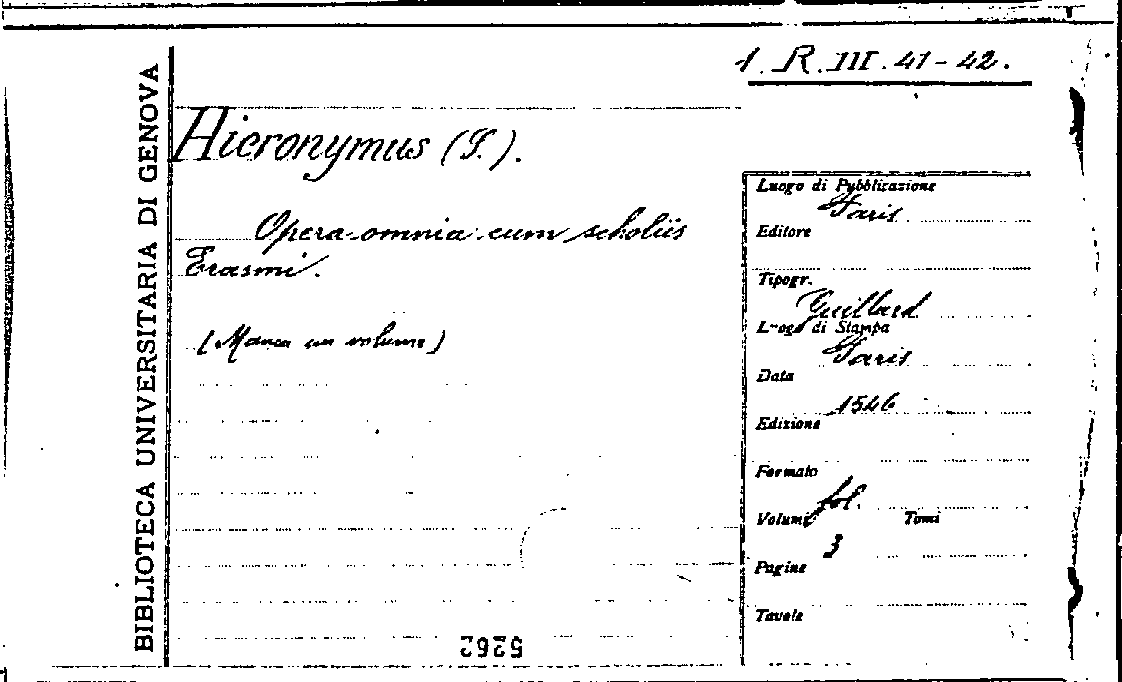 1. R. III. 41-42.
BIBLIOTECA UNIVERSITARIA DI GENOVA
Hieronymus (S.).
Opera omnia cum scholiis
Erasmi.
(Manca un volume)
Luogo di Pubblicazione
Paris
Editore
Tipogr.
Guillard
Luogo di Stampa
Paris
Data
1546
Edizione
Formato
fol.
Volumi Tomi
3
Pagine
Tavole
5262